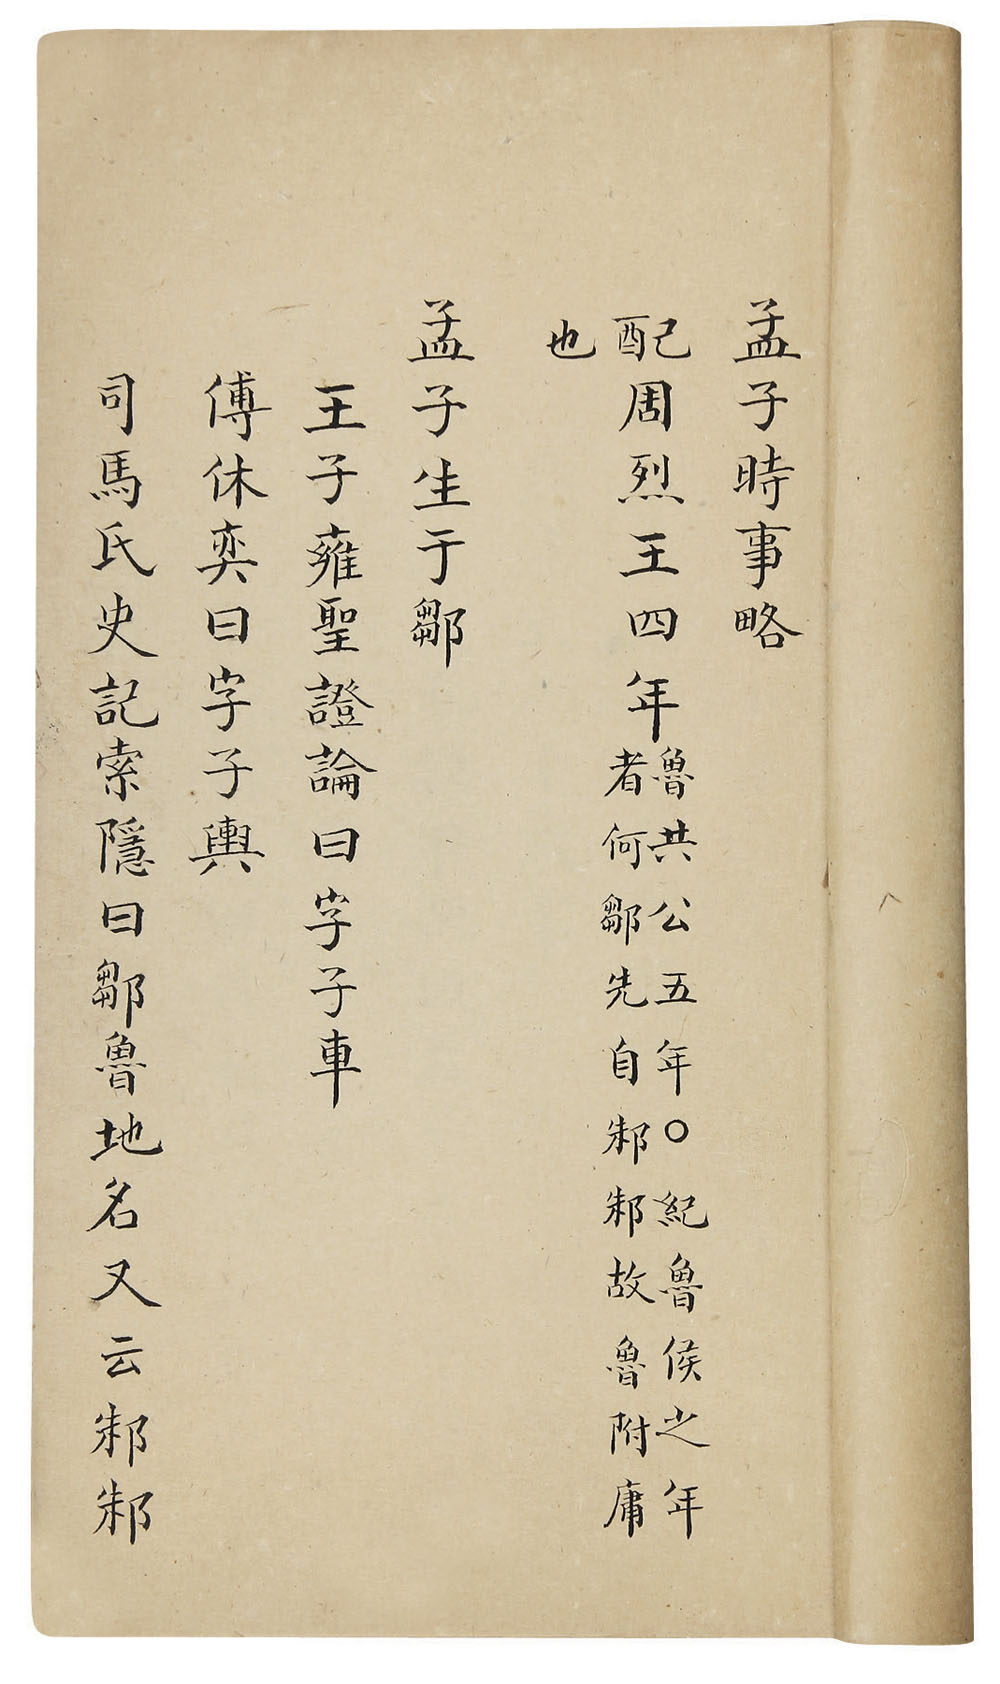 孟子時事略
己酉周烈王四年
魯共公五年○紀魯侯之年
者何鄒先自邾邾故魯附庸
也
孟子生于鄒
王子雍聖證論曰字子車
傅休奕曰字子輿
司馬氏史記索隱曰鄒魯地名又云邾邾